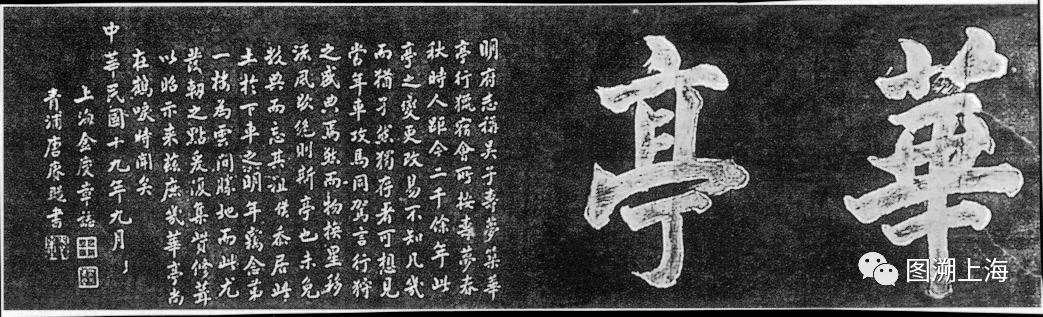 華亭
明府志稱吴子壽夢築華
亭行獵宿會所按壽夢春
秋時人距今二千餘年此
亭之變更改易不知凡幾
而猶孑然獨存者可想見
當年車攻馬同駕言行狩
之盛典焉然而物換星移
流風歇絶則斯亭也未免
數典而忘其祖僕忝居此
土於下車之明年竊念第
一樓為雲間勝地而此尤
發軔之點爰復集貲修葺
以昭示来兹庶幾華亭尚
在鶴唳時聞矣
中華民國十九年九月
上海金慶章誌
青浦唐書
图溯上海